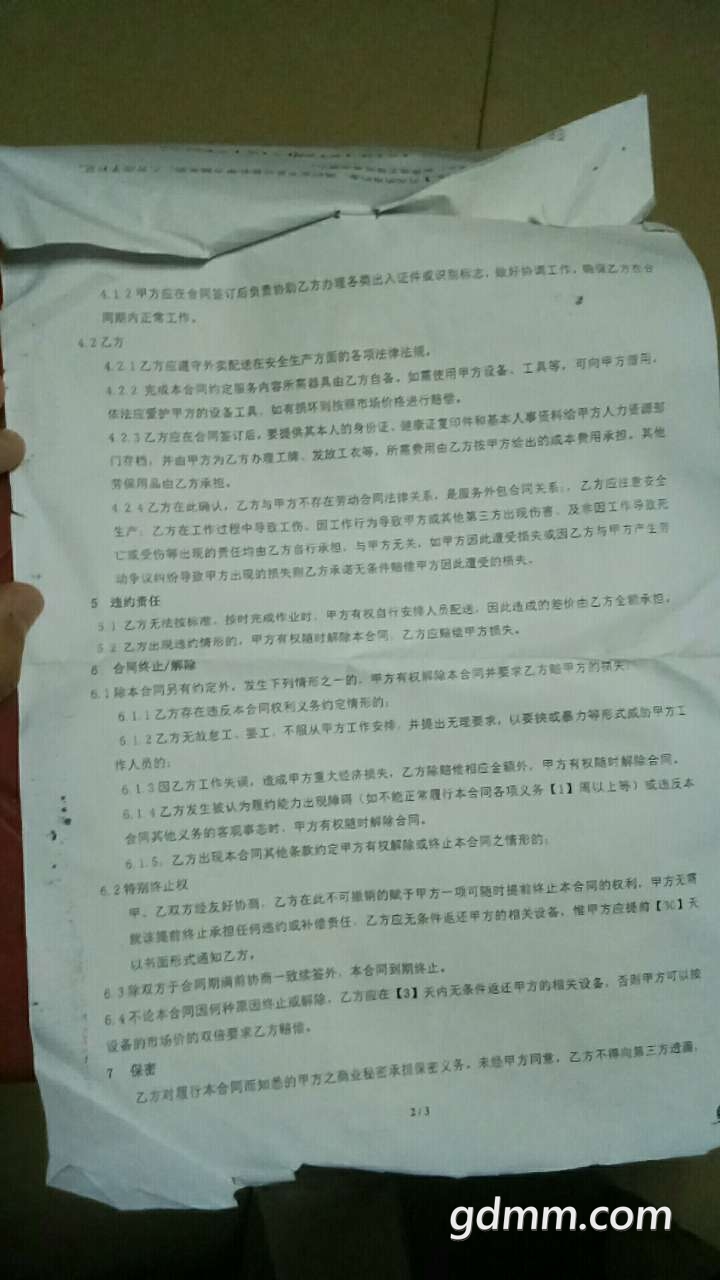 4.1.2甲方应在合同签订后负责协助乙方办理各类出入证件或识别标志，做好协调工作，确保乙方在合
同期内正常工作。
4.2乙方
4.2.1乙方应遵守外卖配送在安全生产方面的各项法律法规。
4.2.2 完成本合同约定服务内容所需器具由乙方自备。如需使用甲方设备、工具等，可向甲方借用，
依法应爱护甲方的设备工具，如有损坏则按照市场价格进行赔偿。
4.2.3乙方应在合同签订后，要提供其本人的身份证、健康证复印件和基本人事资料给甲方人力资源部
门存档，并由甲方为乙方办理工牌、发放工衣等，所需费用由乙方按甲方给出的成本费用承担。其他
劳保用品由乙方承担。
4.2.4乙方在此确认，乙方与甲方不存在劳动合同法律关系，是服务外包合同关系；，乙方应注意安全
生产；乙方在工作过程中导致工伤、因工作行为导致甲方或其他第三方出现伤害、及非因工作导致死
亡或受伤等出现的责任均由乙方自行承担，与甲方无关，如甲方因此遭受损失或因乙方与甲方产生劳
动争议纠纷导致甲方出现的损失则乙方承诺无条件赔偿甲方因此遭受的损失。
5 违约责任
5.1 乙方无法按标准、按时完成作业时，甲方有权自行安排人员配送，因此造成的差价由乙方全额承担。
5.2 乙方出现违约情形的，甲方有权随时解除本合同，乙方应赔偿甲方损失。
6 合同终止/解除
6.1除本合同另有约定外，发生下列情形之一的，甲方有权解除本合同并要求乙方赔甲方的损失：
6.1.1乙方存在违反本合同权利义务约定情形的；
6.1.2乙方无故怠工、罢工、不服从甲方工作安排，并提出无理要求，以要挟或暴力等形式威胁甲方工
作人员的；
6.1.3因乙方工作失误，造成甲方重大经济损失，乙方除赔偿相应金额外，甲方有权随时解除合同。
6.1.4乙方发生被认为履约能力出现障碍（如不能正常履行本合同各项义务【1】周以上等）或违反本
合同其他义务的客观事态时，甲方有权随时解除合同。
6.1.5，乙方出现本合同其他条款约定甲方有权解除或终止本合同之情形的；
6.2特别终止权
甲、乙双方经友好协商，乙方在此不可撤销的赋予甲方一项可随时提前终止本合同的权利，甲方无需
就该提前终止承担任何违约或补偿责任，乙方应无条件返还甲方的相关设备，惟甲方应提前【30】天
以书面形式通知乙方。
6.3除双方于合同期满前协商一致续签外，本合同到期终止。
6.4不论本合同因何种原因终止或解除，乙方应在【3】天内无条件返还甲方的相关设备，否则甲方可以按
设备的市场价的双倍要求乙方赔偿。
7 保密
乙方对履行本合同而知悉的甲方之商业秘密承担保密义务，未经甲方同意，乙方不得向第三方透露，
2/3
gdmm.com